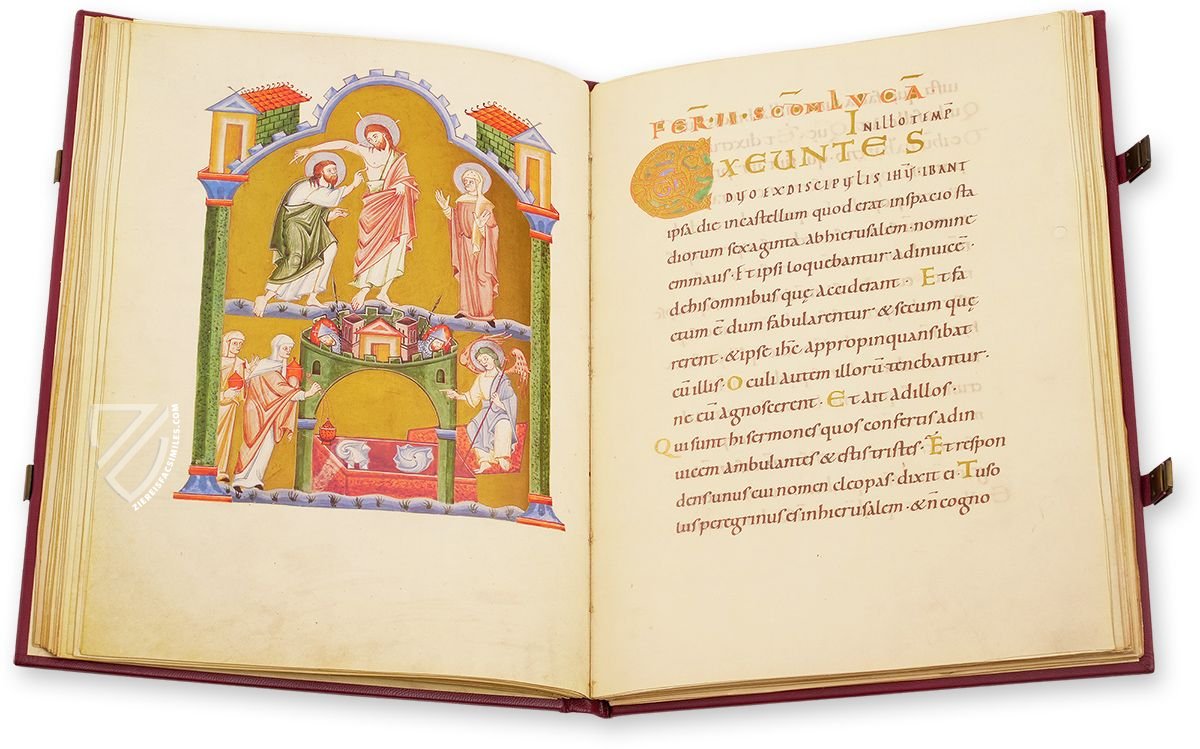 ZIEREISFACSIMILES.COM
FER̄·II·S̄·C̄OM LVCĀ
IN ILLO TEMP̄
EXEUNTES
DUO EX DISCIPULIS IHV̄ IBANT
ipsa die in castellum quod erat in spacio sta
diorum sexaginta ab hierusalem · nomine
emmaus · Et ipsi loquebantur ad inuicē·
de his omnibus quę acciderant · Et fa
ctum ē dum fabularentur & secum quę
rerent · & ipse ihc̄ appropinquans ibat
cū illis · Oculi autem illorū tenebantur ·
ne eū agnoscerent · Et ait ad illos ·
Qui sunt hi sermones quos confertis ad in
uicem ambulantes & estis tristes · Et respon
dens unus cui nomen cleopas · dixit ei · Tu so
lus peregrinus es in hierusalem · & n̄ cogno